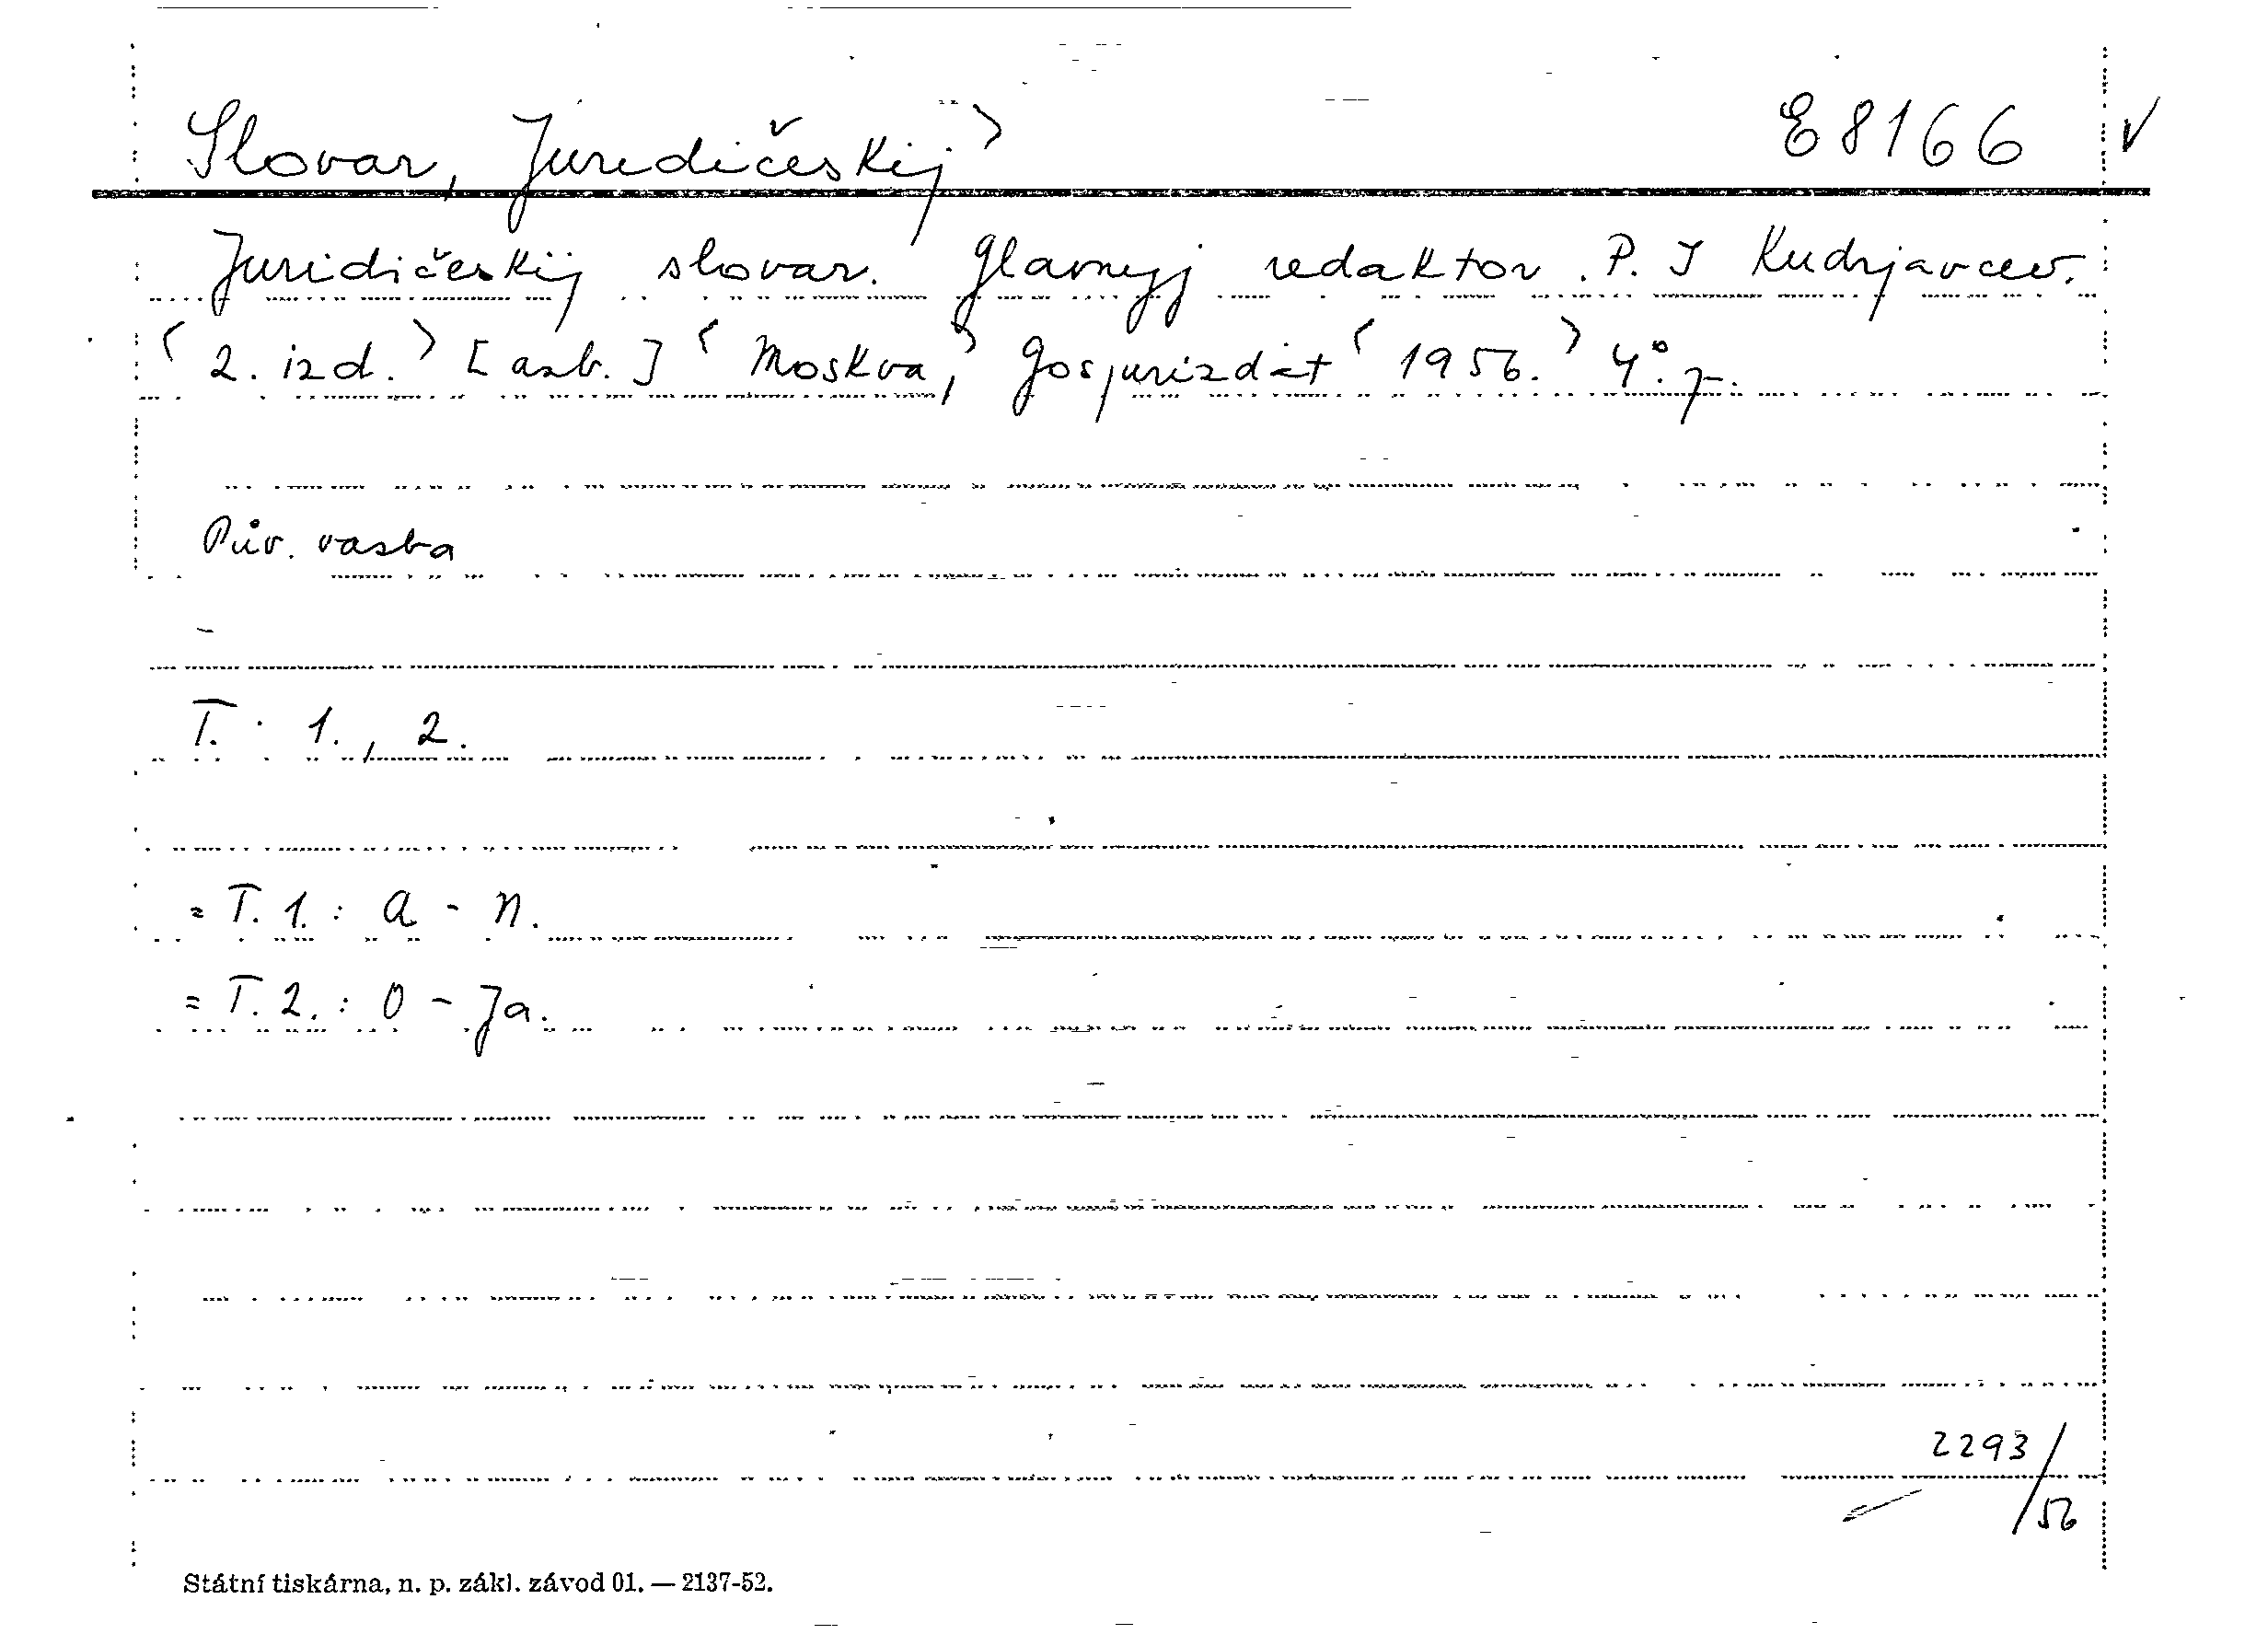 Slovar, Juridičeskij〉 E 8166 ✓
Juridičeskij slovar. Glavnyj redaktor P. I Kudrjavcev.
〈2. izd.〉 [azb.] 〈Moskva,〉 Gosjurizdat 〈1956.〉 4°.
Pův. vazba
T. 1., 2.
= T. 1.: A - N.
= T. 2.: O - Ja.
2293/56
Státní tiskárna, n. p. zákl. závod 01. — 2137-52.